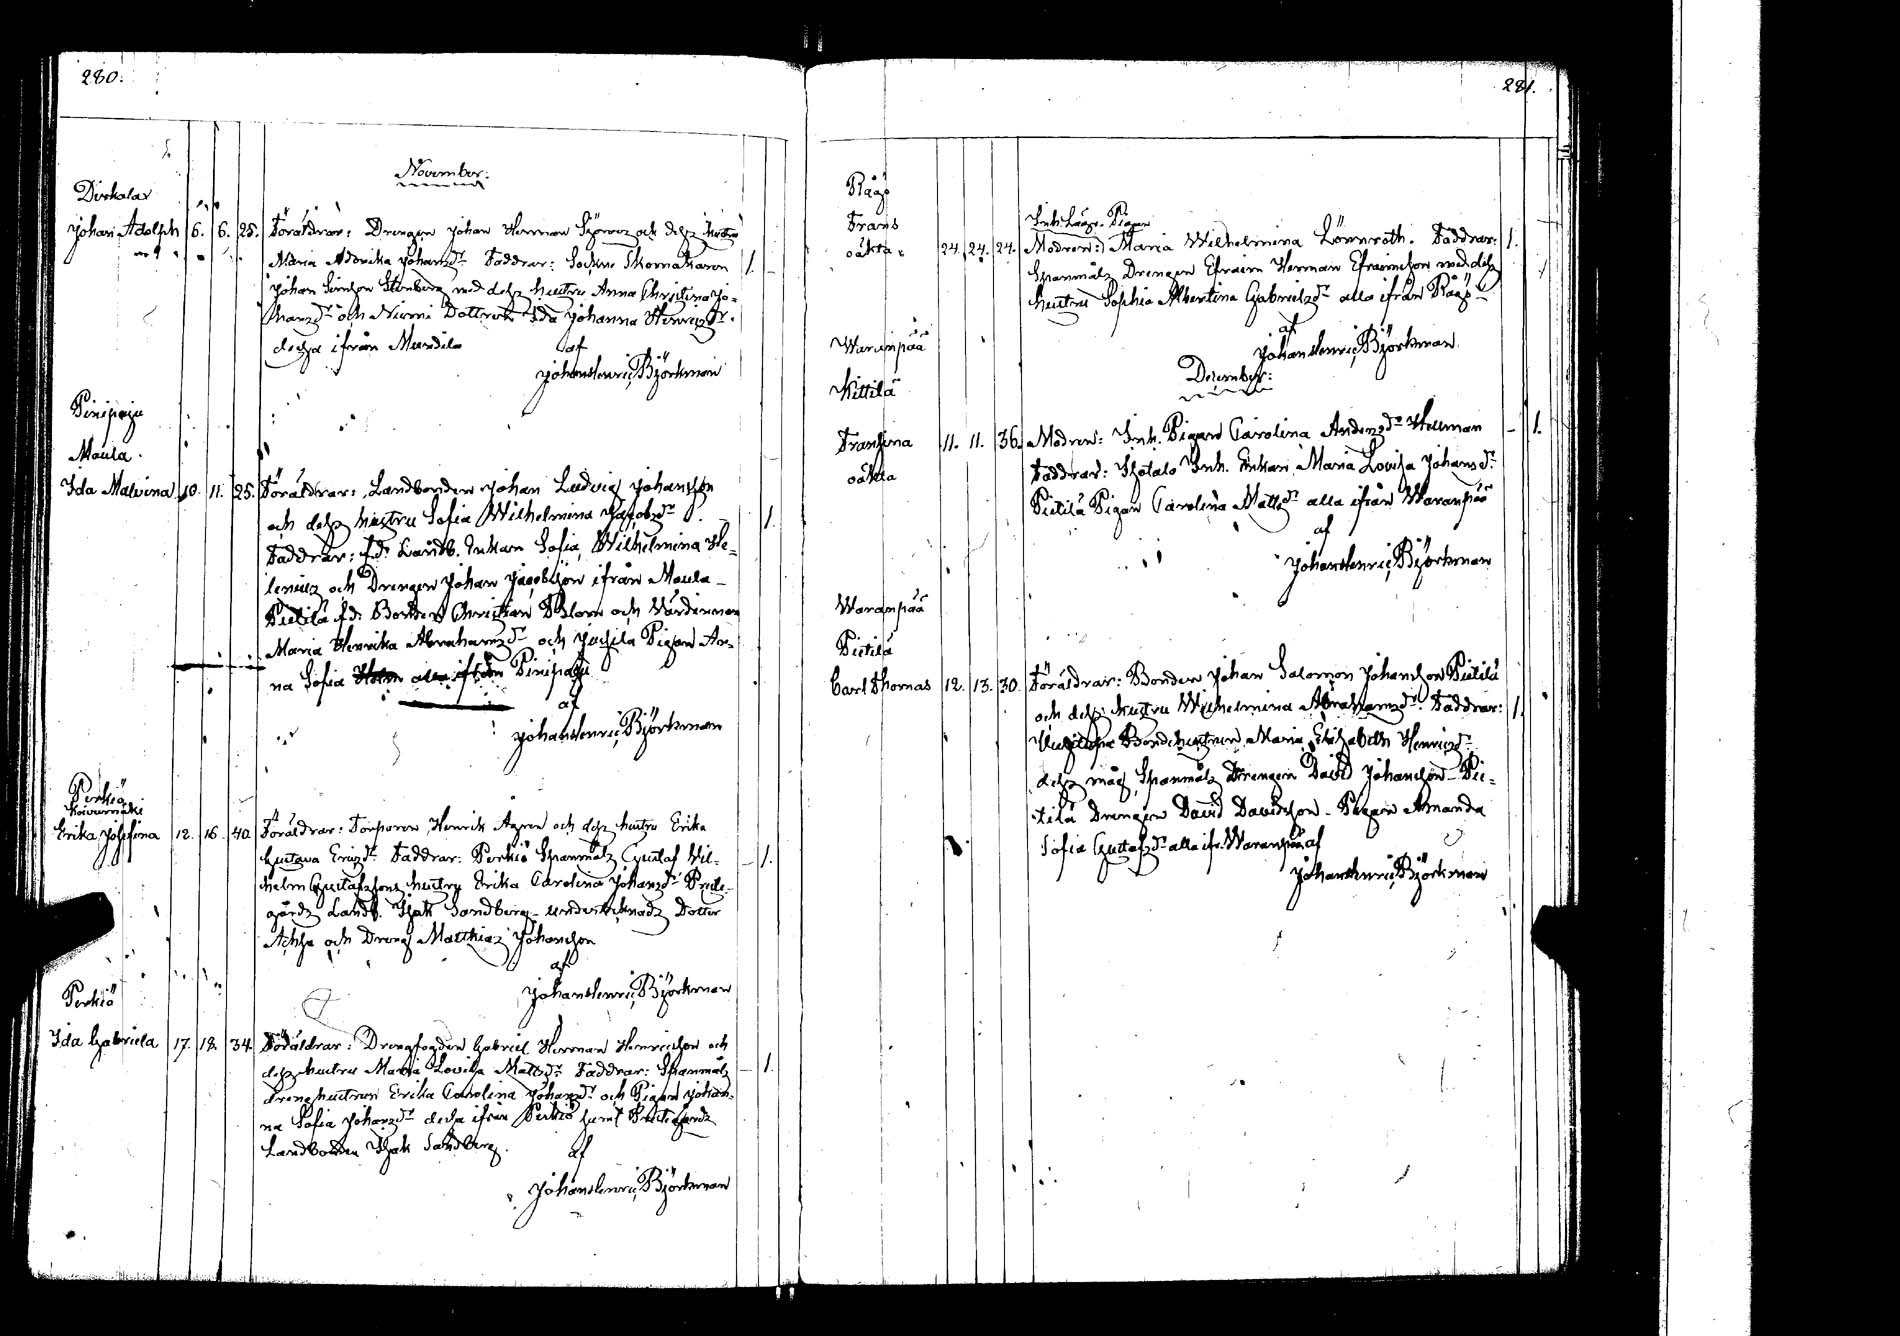 280.
November:
Dirkala
Johan Adolph 6. 6. 25. Föräldrar: Drengen Johan Herrman och dess hustru
Maria Johansdr Faddrar: Sockne Skomakaren 1.
Johan Simsson Stenberg med dess hustru Anna Christina Jo=
hansdr och Dottren Ida Johanna Henricsdr.
dessa ifrån
af
Johan Henric Björkman
Pinipaju
Maula.
Ida Malvina 10. 11. 25. Föräldrar: Landbonden Johan Ludvig Johansson
och dess hustru Sofia Wilhelmina Jacobsdr. 1.
Faddrar: f.d. Landb. Enkan Sofia Wilhelmina He=
lenius och Drengen Johan Jacobsson ifrån Maula
Pietilä f.d. Bonden Christian Blom och Värdinnan
Maria Henrika Abrahamsdr och Pigan An=
na Sofia alla ifrån Pinipaju
af
Johan Henric Björkman
Perkiö
Koivumäki
Erika Josefina 12. 16. 40. Föräldrar: Torparen Henrik Agren och dess hustru Erika
Gustava Ericsdr. Faddrar: Perkiö Spanmåls Gustaf Wil= 1.
helm Gustafssons hustru Erika Carolina Johansdr
gårds Landb. Isak Sandberg undertecknads Dotter
och Dreng Matthias Johansson
af
Johan Henric Björkman
Perkiö
Ida Gabriela 17. 18. 34. Föräldrar: Drengfogden Gabriel Herman Henricsson och
dess hustru Maria Lovisa Mattsdr Faddrar: Spanmåls 1.
drenghustrun Erika Carolina Johansdr och Pigan Johan=
na Sofia Johansdr dessa ifrån Perkiö samt
Landbonden Isak Sandberg.
af
Johan Henric Björkman
281.
Rågö
Frans Inh. Pigan
oäkta 24. 24. 24. Modren: Maria Wilhelmina Lönnroth. Faddrar: 1.
Spanmåls Drengen Efraim Herman Efraimsson med dess
hustru Sophia Albertina Gabrielsdr alla ifrån Rågö
af
Johan Henric Björkman.
December:
Waranpää
Kittilä
Fransina 11. 11. 36. Modren: Inh. Pigan Carolina Andersdr Hellman 1.
oäkta Faddrar: Inh. Enkan Maria Lovisa Johansdr
Pietilä Pigan Carolina Mattsdr alla ifrån Waranpää
af
Johan Henric Björkman
Waranpää
Pietilä
Carl Thomas 12. 13. 30. Föräldrar: Bonden Johan Salomon Johansson Pietilä
och dess hustru Wilhelmina Abrahamsdr. Faddrar: 1.
Bondehustrun Maria Elisabeth Henricsdr
dess måg Spanmåls Drengen David Johansson Pie=
tilä Drengen David Davidsson Pigan Amanda
Sofia Gustafsdr alla ifr. Waranpää af
Johan Henric Björkman